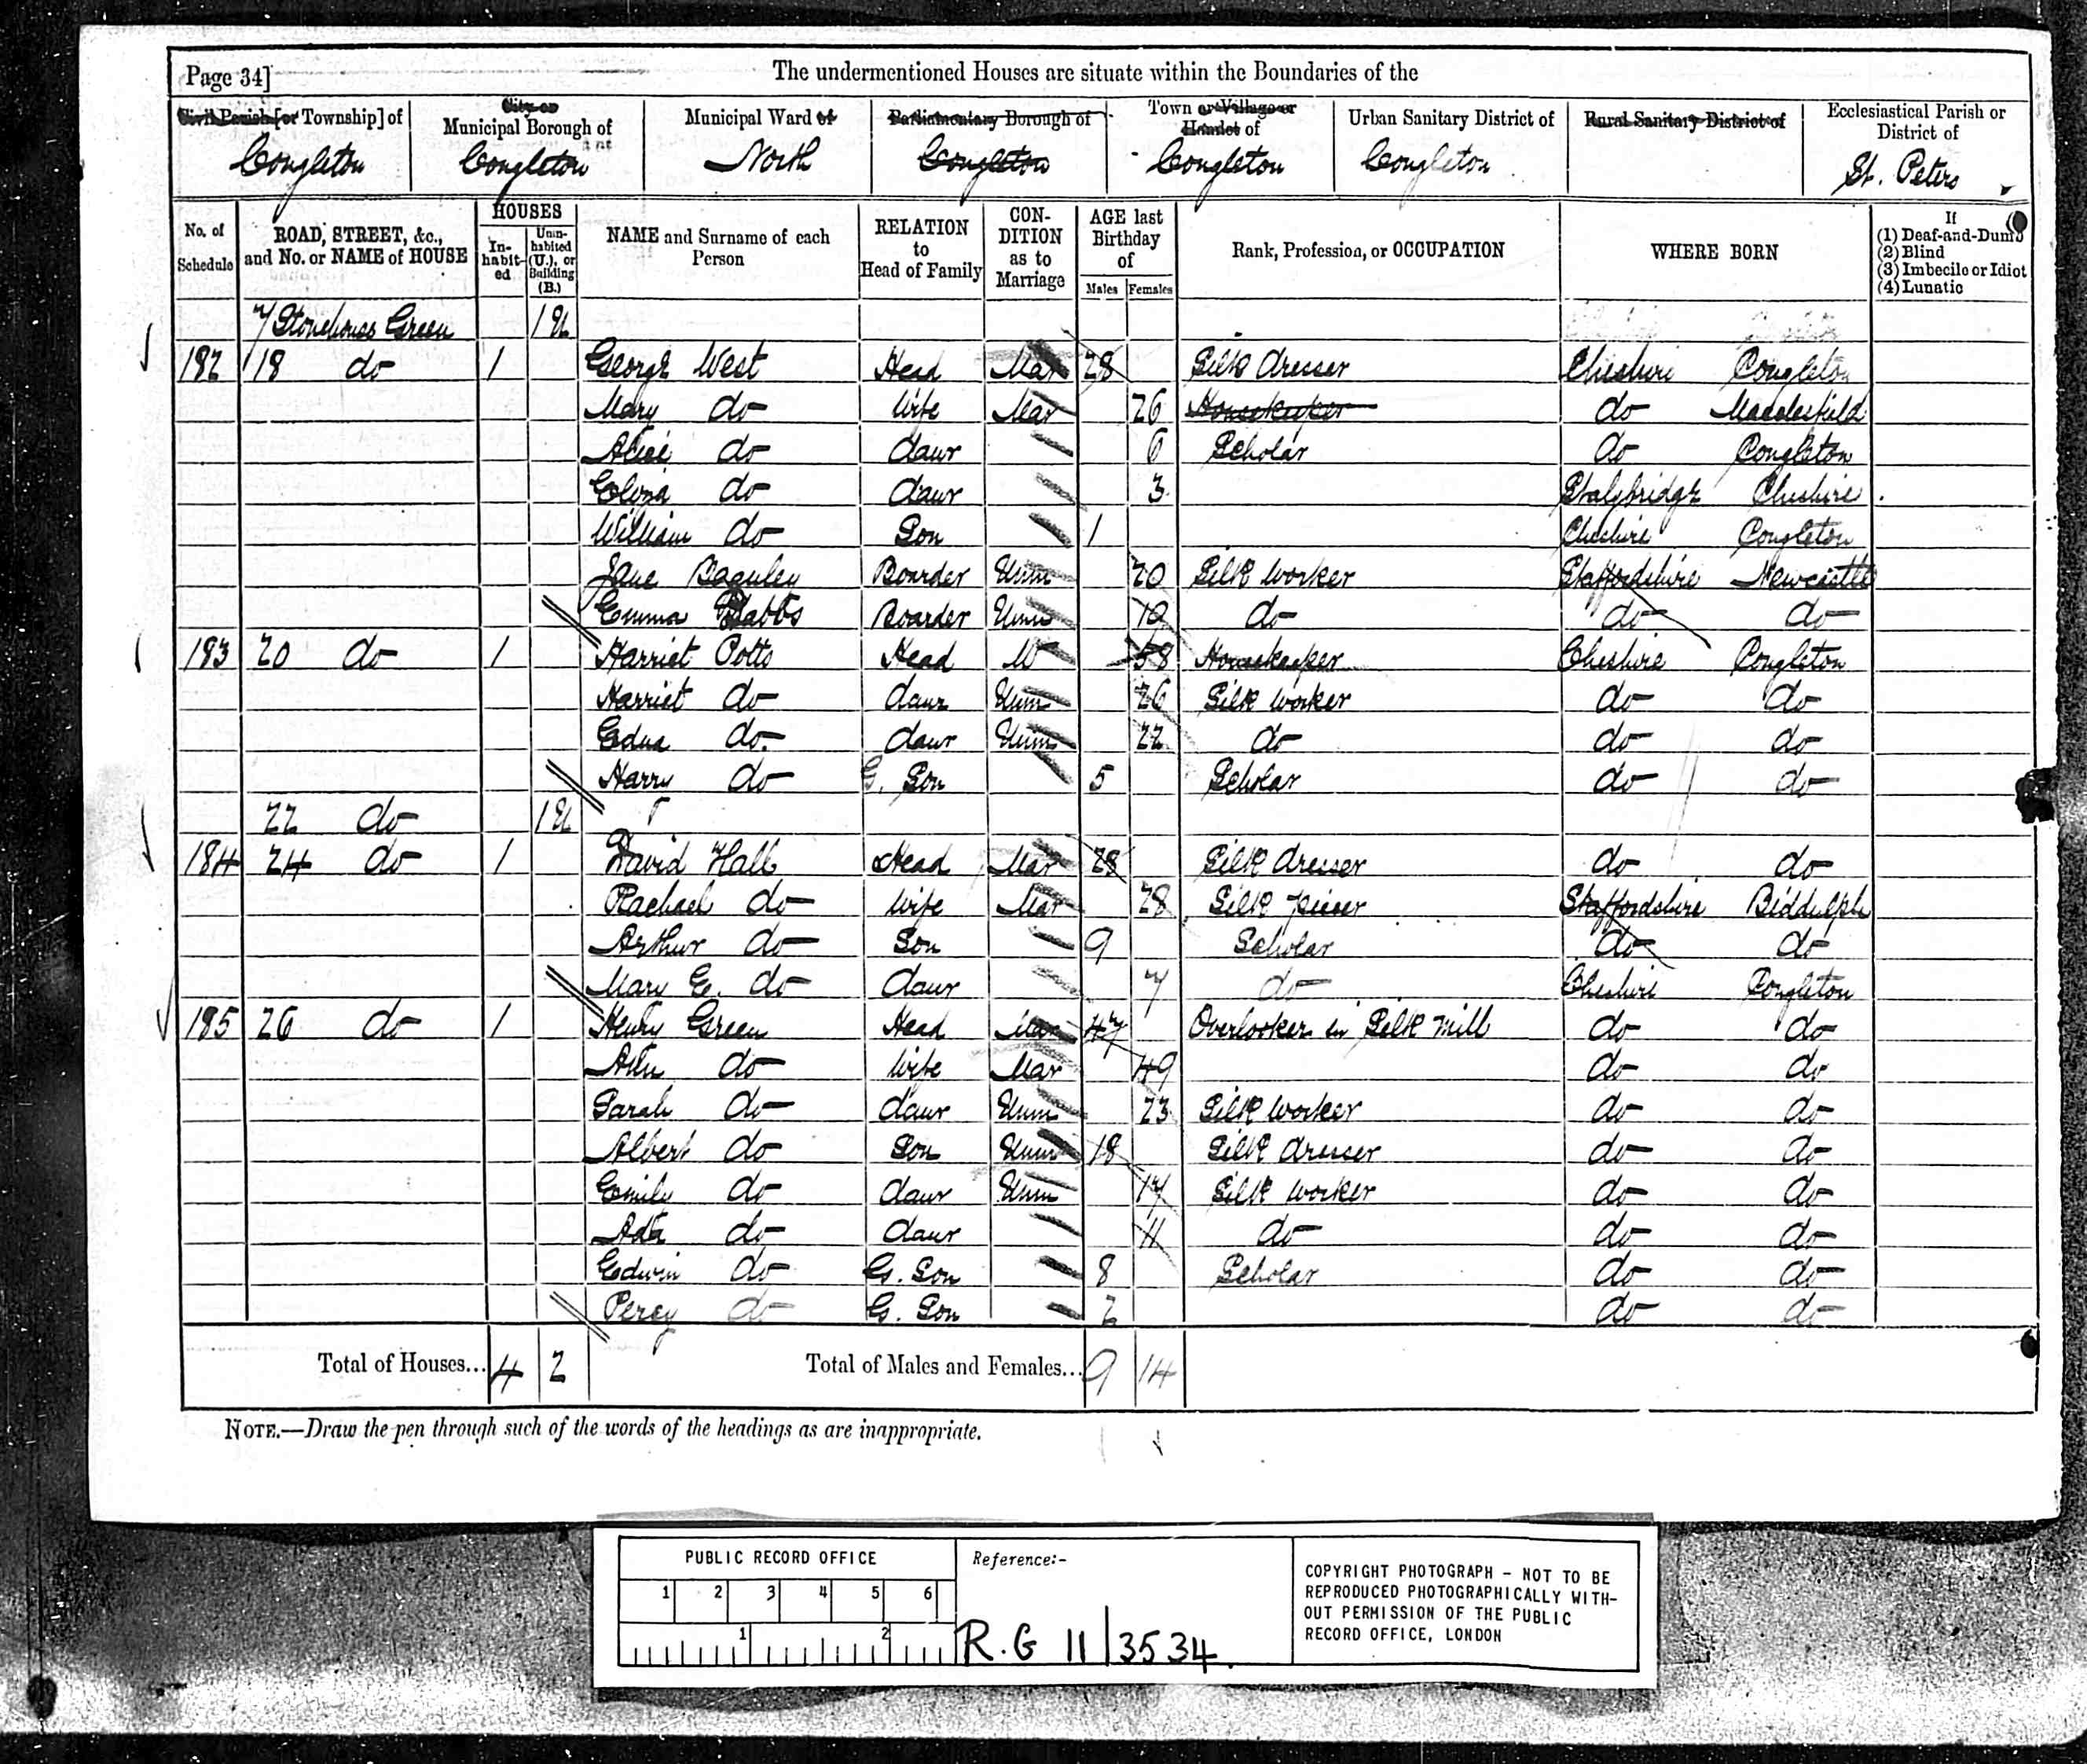 Page 34]
The undermentioned Houses are situate within the Boundaries of the
Civil Parish [or Township] of
City or Municipal Borough of
Municipal Ward of
Parliamentary Borough of
Town or Village or Hamlet of
Urban Sanitary District of
Rural Sanitary District of
Ecclesiastical Parish or District of
Congleton Congleton North Congleton Congleton Congleton St. Peters
No. of Schedule
ROAD, STREET, &c., and No. or NAME of HOUSE
HOUSES
In-habit-ed
Unin-habited (U.), or Building (B.)
NAME and Surname of each Person
RELATION to Head of Family
CON-DITION as to Marriage
AGE last Birthday of
Males Females
Rank, Profession, or OCCUPATION
WHERE BORN
If
(1) Deaf-and-Dumb
(2) Blind
(3) Imbecile or Idiot
(4) Lunatic
Stonehouse Green 1 U
182 18 do 1 George West Head Mar 28 Silk dresser Cheshire Congleton
Mary do Wife Mar 26 Housekeeper do Macclesfield
Alice do daur 6 Scholar do Congleton
do daur 3 Stalybridge Cheshire
William do Son 1 Cheshire Congleton
Jane Baguley Boarder Unm 20 Silk worker Staffordshire Newcastle
Emma Boarder Unm do do do
183 20 do 1 Harriet Potts Head W 58 Housekeeper Cheshire Congleton
Harriet do daur Unm 26 Silk worker do do
Edna do. daur Unm 22 do do do
Harry do G. Son 5 Scholar do do
22 do 1 U
184 24 do 1 David Hall Head Mar 28 Silk dresser do do
Rachael do Wife Mar 28 Silk piecer Staffordshire Biddulph
Arthur do Son 9 Scholar do do
Mary E. do daur 7 do Cheshire Congleton
185 26 do 1 Henry Green Head Mar 47 Overlooker in Silk Mill do do
do Wife Mar 49 do do
Sarah do daur Unm 23 Silk worker do do
Albert do Son Unm 18 Silk dresser do do
Emily do daur Unm 17 Silk worker do do
Ada do daur 11 do do do
Edwin do G. Son 8 Scholar do do
Percy do G. Son 2 do do
Total of Houses... 4 2 Total of Males and Females... 9 14
NOTE.—Draw the pen through such of the words of the headings as are inappropriate.
PUBLIC RECORD OFFICE
1 2 3 4 5 6
1 2
Reference:-
R.G 11/3534.
COPYRIGHT PHOTOGRAPH - NOT TO BE
REPRODUCED PHOTOGRAPHICALLY WITH-
OUT PERMISSION OF THE PUBLIC
RECORD OFFICE, LONDON